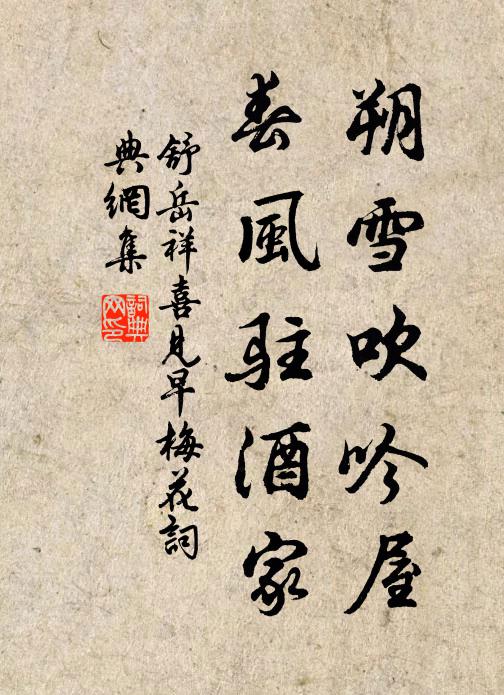 朔雪吹吟屋
春風駐酒家
舒岳祥喜見早梅花詞
典網集
詞典網印